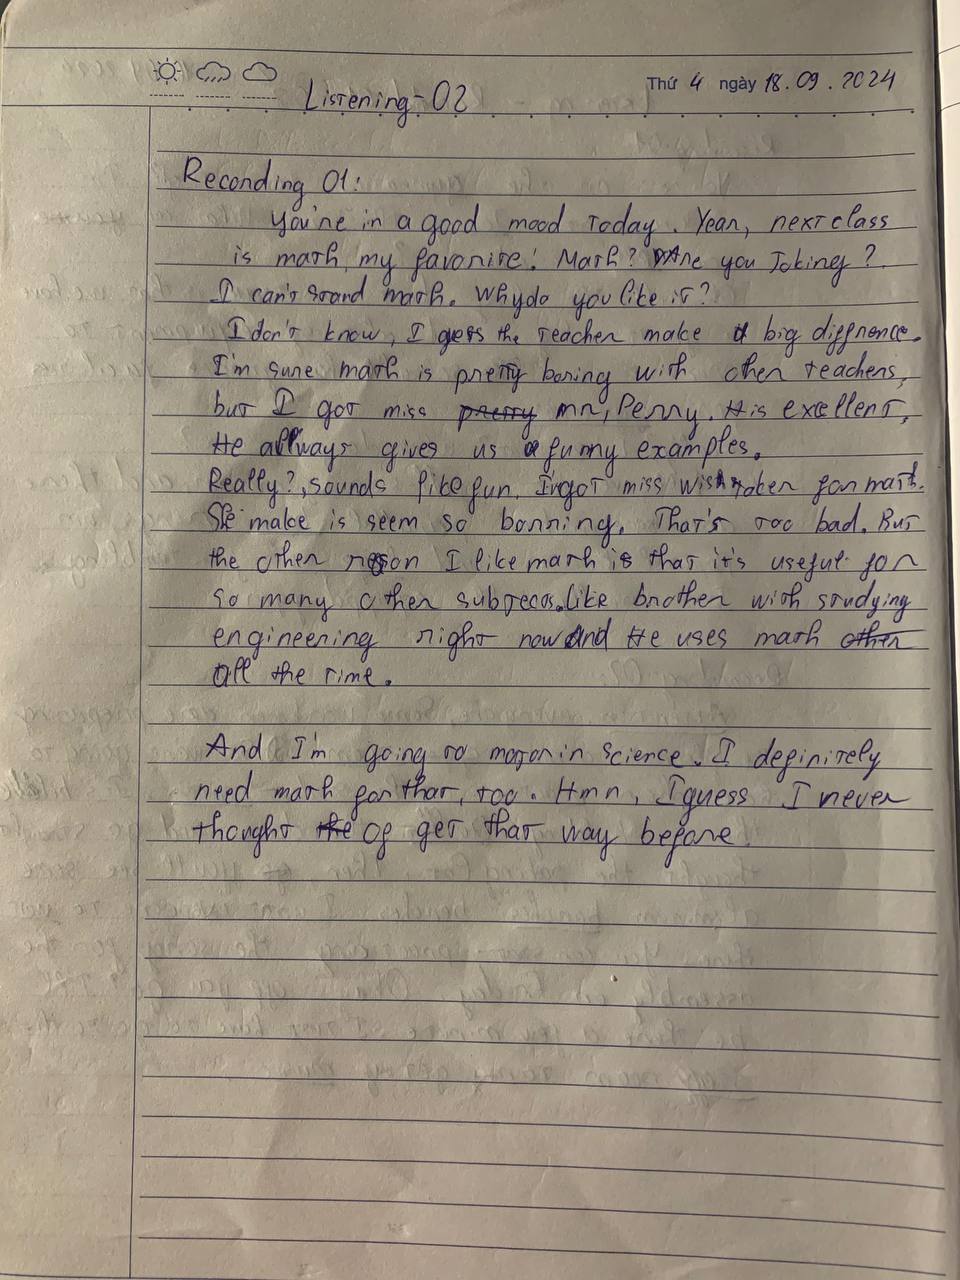 Thứ 4 ngày 18.09.2024
Listening-02
Recording 01:
You're in a good mood today. Yean, next class
is math, my favorite! Math? Are you Joking?
I can't stand math. Why do you like it?
I don't know, I gess the teacher make a big diffrence.
I'm sure math is pretty boring with other teachers,
but I got miss pretty mr, Perry. His excellent,
He allways gives us a funny examples.
Really?, sounds like fun. I got miss for mart.
She make is seem so borring. That's too bad. But
the other reson I like math is that it's useful for
so many other subjecs. like brother with studying
engineering right now and He uses math other
all the time.
And I'm going to major in Science. I definitely
need math for that, too. Hmn, I guess I never
thought the of get that way before.